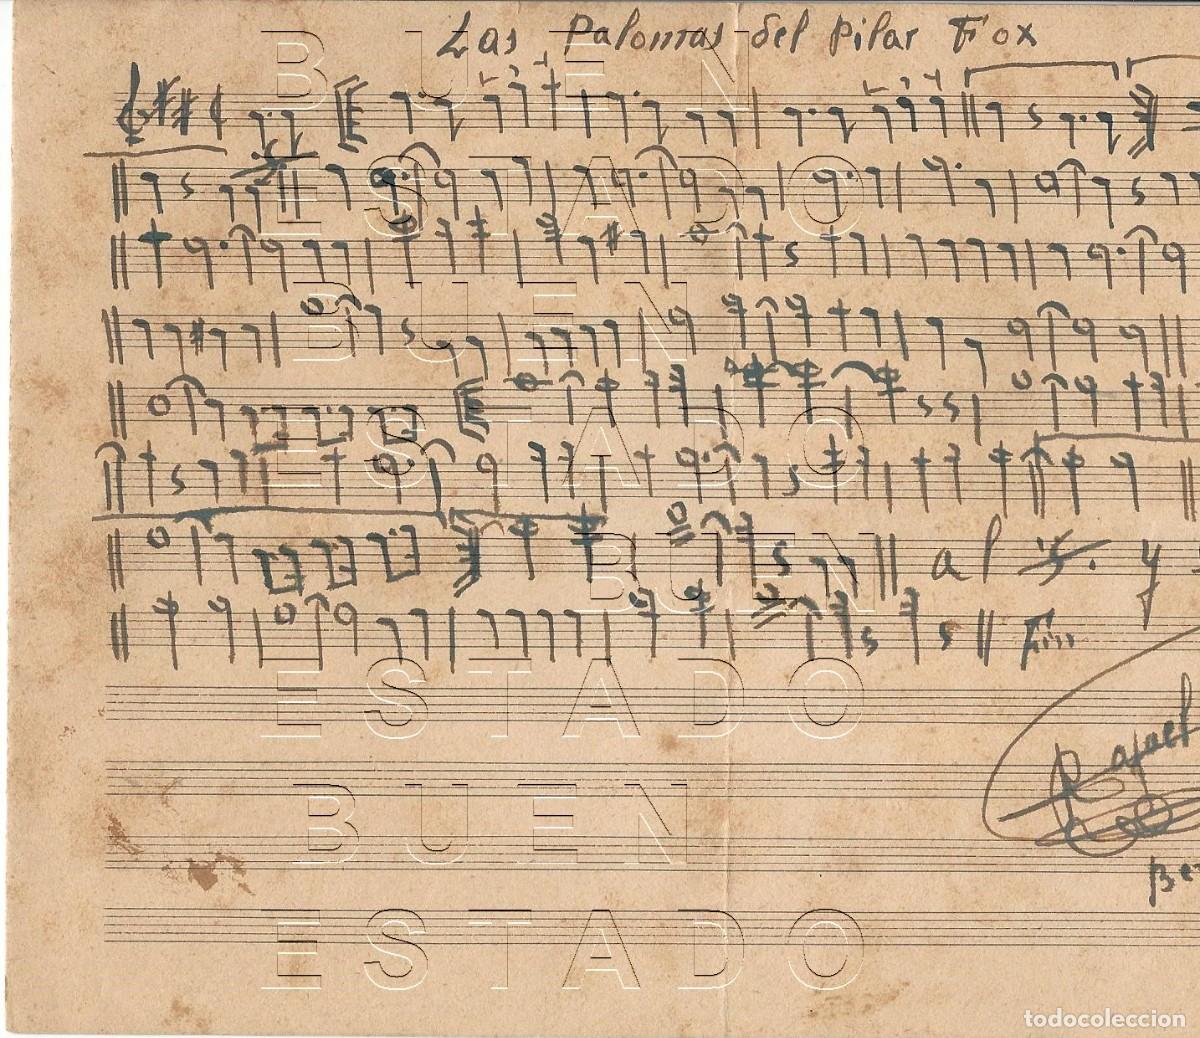 Las Palomas del Pilar Fox
BUEN
ESTADO
BUEN
ESTADO
al y
BUEN
Fin
ESTADO
Rafael
BUEN
Be
ESTADO
todocoleccion